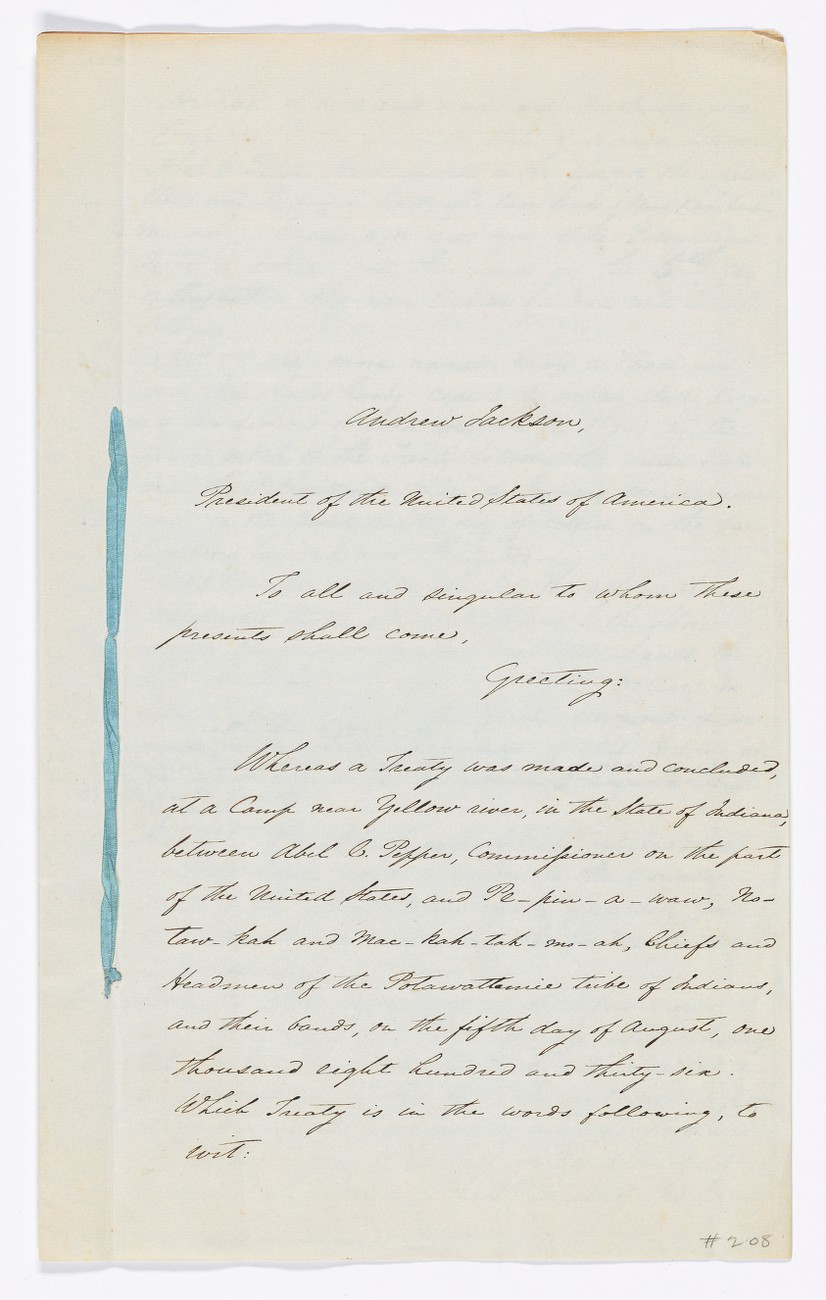 Andrew Jackson,
President of the United States of America.
To all and singular to whom these
presents shall come,
Greeting:
Whereas a Treaty was made and concluded,
at a Camp near Yellow river, in the State of Indiana,
between Abel C. Pepper, Commissioner on the part
of the United States, and Pe-pin-a-waw, No-
taw-kah and Mac-kah-tah-mo-ah, Chiefs and
Headmen of the Potawattamie tribe of Indians,
and their bands, on the fifth day of August, one
thousand eight hundred and thirty-six.
Which Treaty is in the words following, to
wit:
# 208